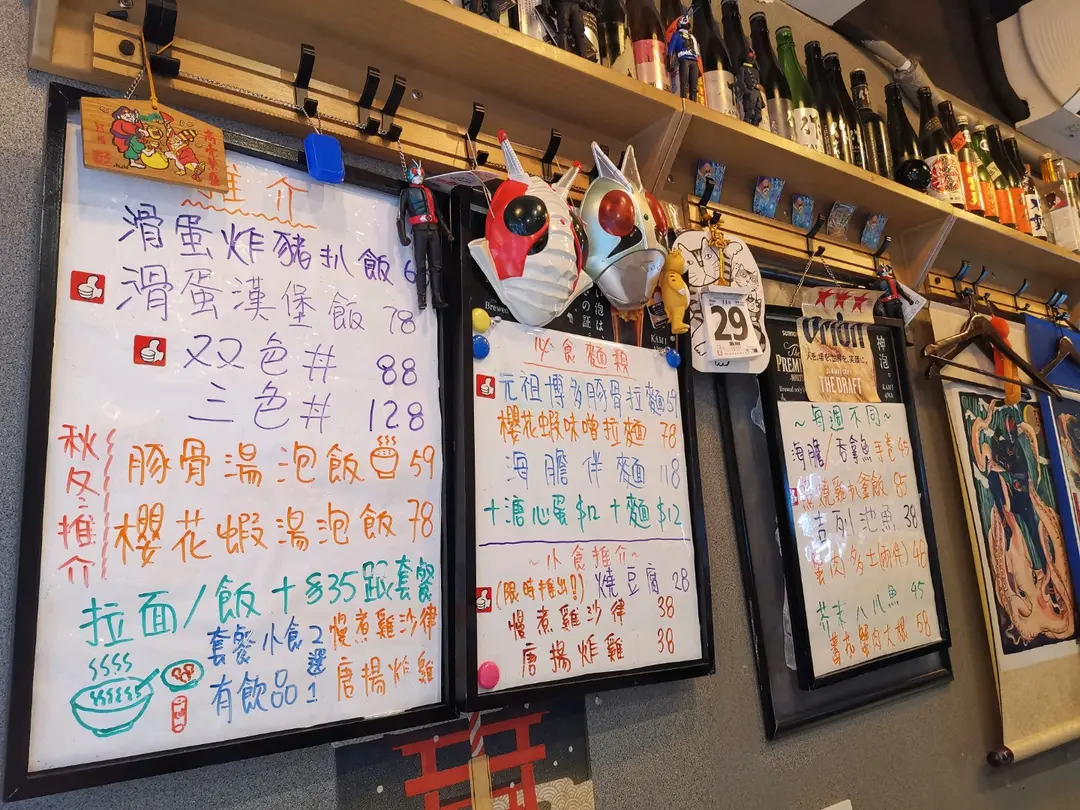 推介
滑蛋炸豬扒飯 6
滑蛋漢堡飯 78
双色丼 88
三色丼 128
秋冬推介
豚骨湯泡飯 59
櫻花蝦湯泡飯 78
拉面/飯+$35跟套餐
套餐小食2選1
有飲品
慢煮雞沙律
唐揚炸雞
必食麵類
元祖博多豚骨拉麵59
櫻花蝦味噌拉麵 78
海膽伴麵 118
+溏心蛋$12 +麵$12
~小食推介~
(限時推出!!) 燒豆腐 28
慢煮雞沙律 38
唐揚炸雞 38
29
神泡。
PREMI
orion
THE DRAFT
~每週不同~
海膽/吞拿魚手卷45
燒雞扒釜飯 85
吉列池魚 38
蟹肉多士(兩件) 46
芥末八爪魚 45
蕃茄蟹肉大根 58